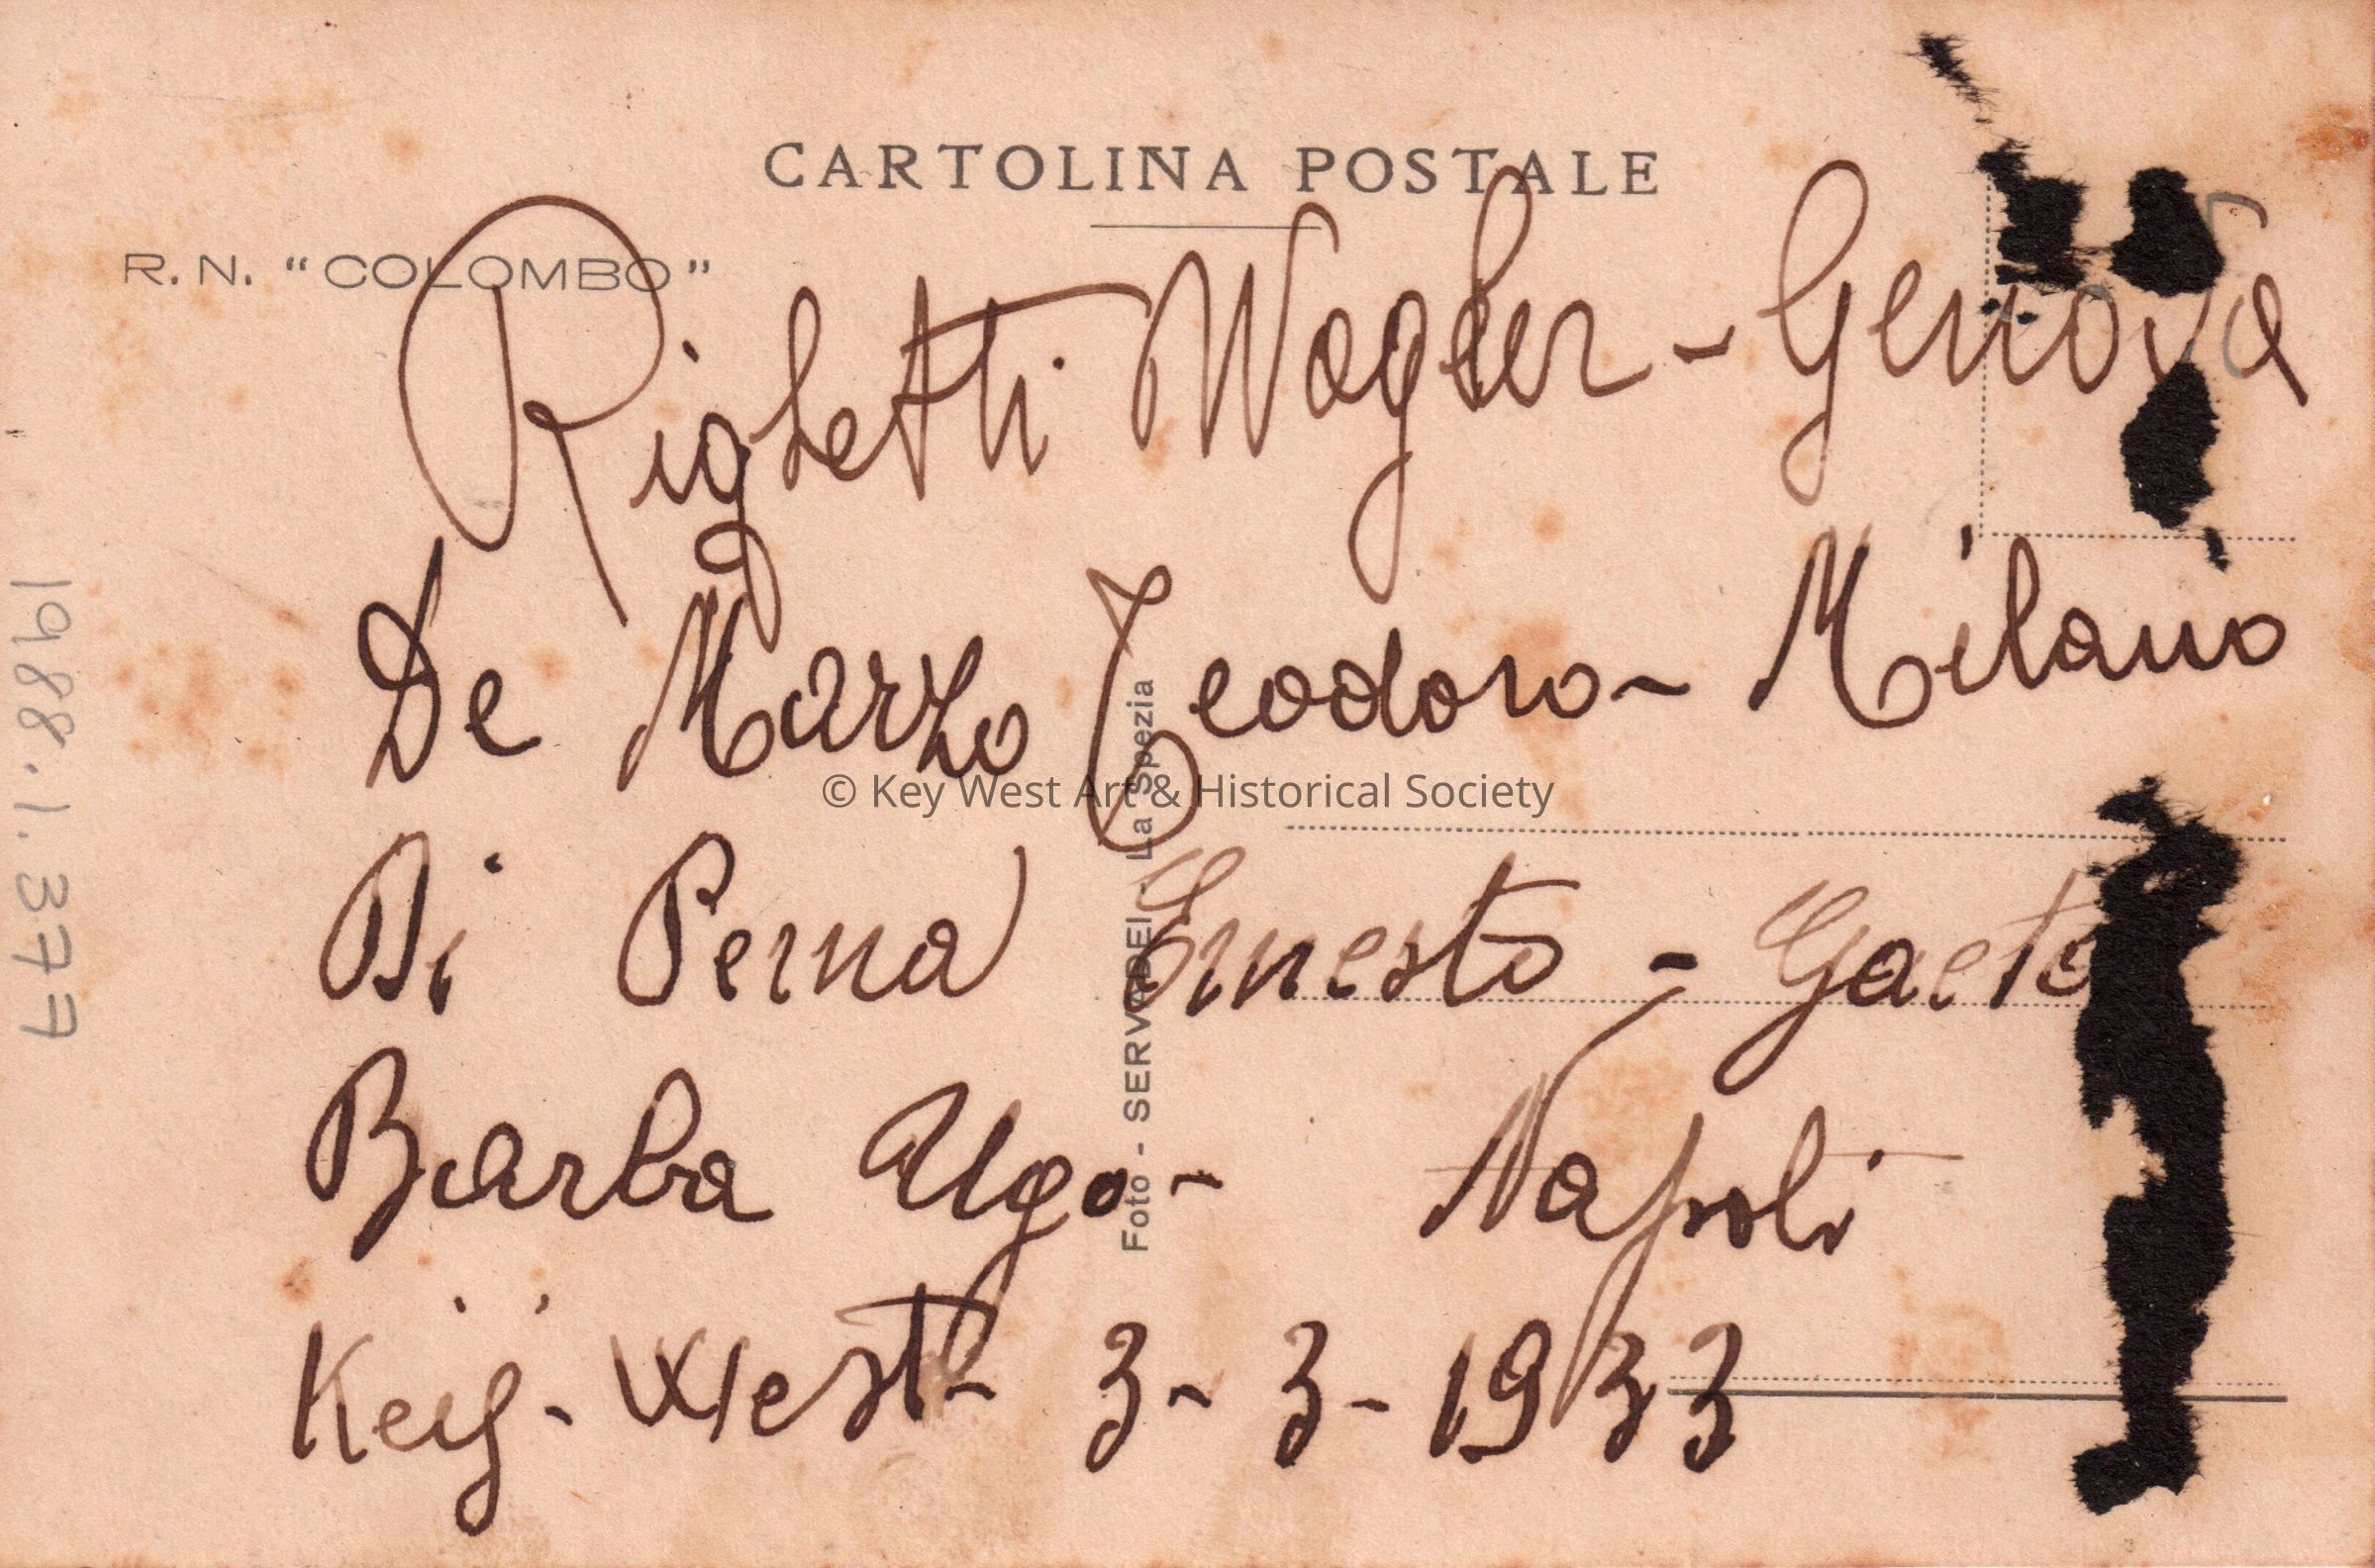 CARTOLINA POSTALE
R. N. "COLOMBO"
Righetti Wogler - Genova
De Marzo Teodoro - Milano
Di Perna Ernesto - Gaeta
Barba Ugo - Napoli
Keÿ - West - 3 - 3 - 1933
Foto - SERVADEI - La Spezia
1988.1.377
© Key West Art & Historical Society